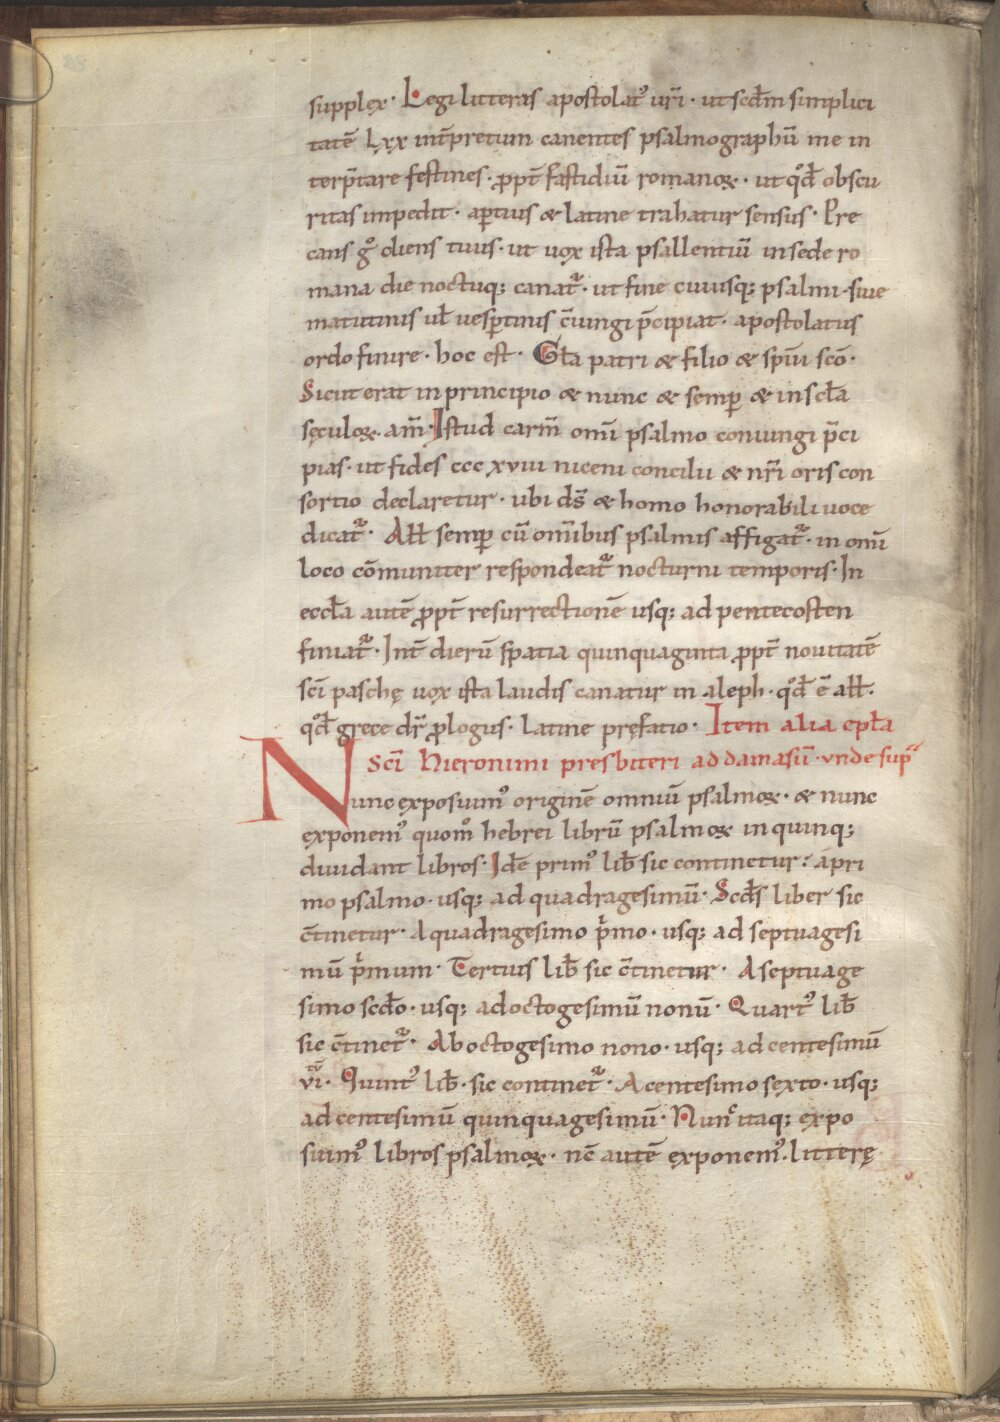 supplex· Legi litteras apostolatꝰ ur̄i · ut scd̄m simplici
tatē lxx int̄pretum canentes psalmographū me in
terp̄tare festines · ꝓpt̄ fastidiū romanoꝝ · ut qd̄ obscu
ritas impedit · aꝑtius & latine trahatur sensus · Pre
cans gͦ cliens tuus · ut uox ista psallentiū in sede ro
mana die noctuq; canat᷑ · ut fine cuiusq; psalmi · siue
matutinis ul̄ uesꝑtinis c̄iungi p̄cipiat · apostolatus
ordo finire · hoc est · Gl̄a patri & filio & sp̄iui scō ·
Sicut erat in principio & nunc & semꝑ & in scl̄a
sęculoꝝ · am̄ · Istud carm̄ om̄i psalmo coniungi p̄ci
pias · ut fides ccc xviii niceni concilii & nr̄i oris con
sortio declaretur · ubi ds̄ & homo honorabili uoce
dicat᷑ · All̄ semꝑ cū om̄ibus psalmis affigat᷑ · in om̄i
loco cōmuniter respondeat᷑ nocturni temporis · In
eccl̄a autē ꝓpt̄ resurrectionē usq; ad pentecosten
finiat᷑ · Int̄ dierū spatia quinquaginta ꝓpt̄ nouitatē
sc̄i paschę uox ista laudis canatur in aleph · qd̄ ē all̄ ·
qd̄ grece dr̄ ꝓlogus · latine pręfatio · Item alia epl̄a
Sc̄i Hieronimi presbiteri ad damasū · vnde sup̄
Nunc exposuimꝰ originē omniū psalmoꝝ · & nunc
exponemꝰ quom̊ hebrei librū psalmoꝝ in quinq;
diuidant libros · Id̄e primꝰ lib̄ sic continetur : a pri
mo psalmo · usq; ad quadragesimū · Scd̄s liber sic
c̄tinetur · A quadragesimo pͥmo · usq; ad septuagesi
mū pͥmum · Tertius lib̄ sic c̄tinetur · A septuage
simo scd̄o · usq; ad octogesimū nonū · Quartꝰ lib̄
sic c̄tinet᷑ · Ab octogesimo nono · usq; ad centesimū
vi · Quintꝰ lib̄ · sic continet᷑ · A centesimo sexto · usq;
ad centesimū quinquagesimū · Nunc itaq; expo
suimꝰ libros psalmoꝝ · nc̄ autē exponemꝰ · litterę